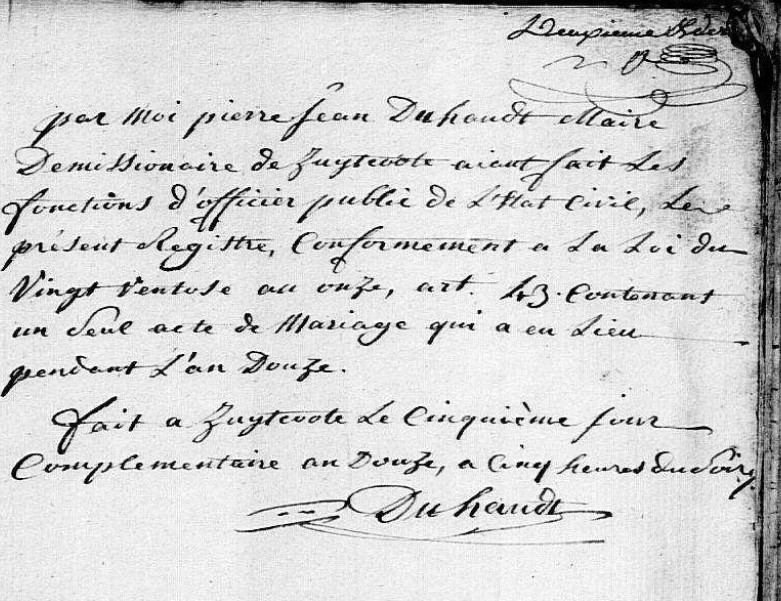 Deuxieme
par Moi pierre Jean Duhandt Maire
Demissionaire de Zuytcoote aiant fait Les
fonctions d'officier public de L'Etat Civil, Le
présent Registre, Conformement a La Loi du
Vingt Ventose an onze, art. 43. Contenant
un Seul acte de Mariage qui a eu Lieu
pendant L'an Douze.
fait a Zuytcoote Le Cinquième jour
Complementaire an Douze, a Cinq heures du Soir,
Duhandt